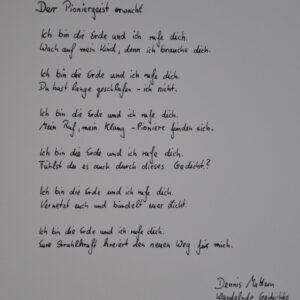 Der Pioniergeist erwacht
Ich bin die Erde und ich rufe dich.
Wach auf mein Kind, denn ich brauche dich.
Ich bin die Erde und ich rufe dich.
Du hast lange geschlafen - ich nicht.
Ich bin die Erde und ich rufe dich.
Mein Ruf, mein Klang - Pioniere finden sich.
Ich bin die Erde und ich rufe dich.
Fühlst du es auch durch dieses Gedicht?
Ich bin die Erde und ich rufe dich.
Vernetzt euch und bündelt euer Licht.
Ich bin die Erde und ich rufe dich.
Eure Strahlkraft kreiert den neuen Weg für mich.
Dennis